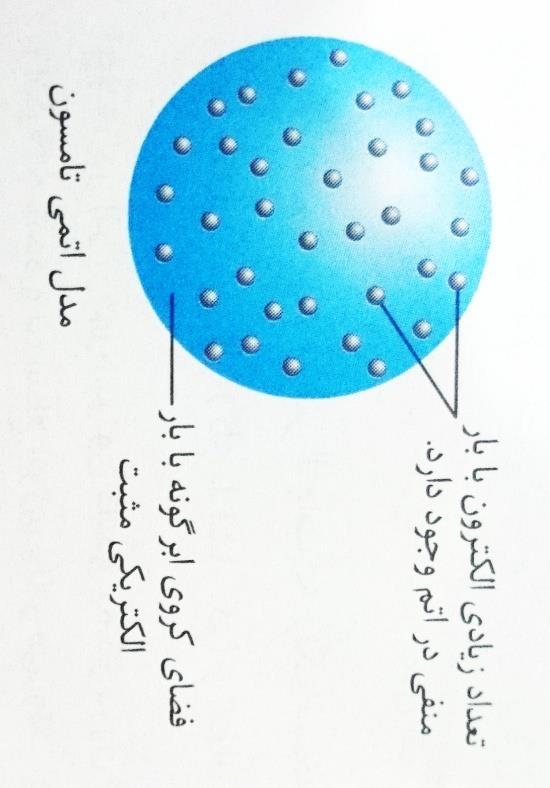 تعداد زیادی الکترون با بار
منفی در اتم وجود دارد.
فضای کروی ابرگونه با بار
الکتریکی مثبت
مدل اتمی تامسون